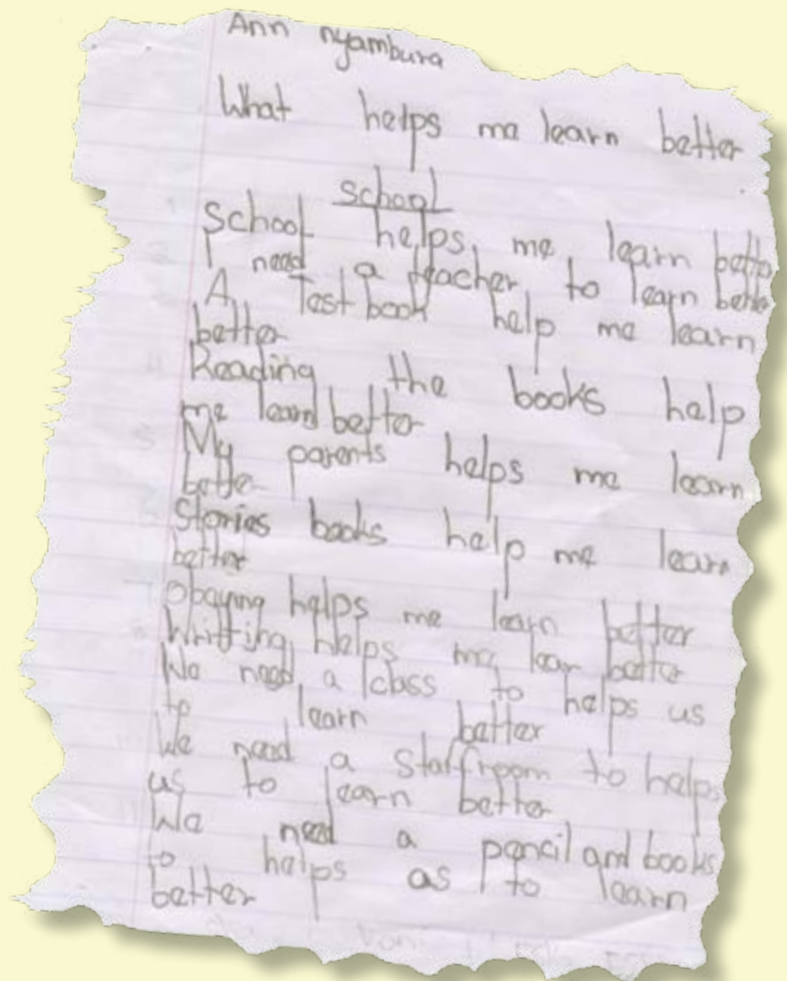 Ann nyambura
What helps me learn better
school
School helps me learn better
I need a teacher to learn better
A Testbook help me learn
better
Reading the books help
me learn better
My parents helps me learn
better
Stories books help me learn
better
obaying helps me learn better
Writting helps me lear better
We need a class to helps us
to learn better
We need a staffroom to helps
us to learn better
We need a pencil and books
to helps as to learn
better